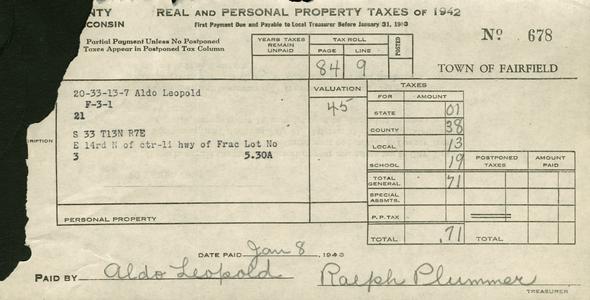 NTY REAL AND PERSONAL PROPERTY TAXES OF 1942
CONSIN First Payment Due and Payable to Local Treasurer Before January 31, 1943
Partial Payment Unless No Postponed
Taxes Appear in Postponed Tax Column
YEARS TAXES REMAIN UNPAID
TAX ROLL
PAGE LINE
POSTED
84 9
No 678
TOWN OF FAIRFIELD
20-33-13-7 Aldo Leopold
F-3-1
21
S 33 T13N R7E
E 14rd N of ctr-li hwy of Frac Lot No
3 5.30A
RIPTION
PERSONAL PROPERTY
VALUATION
45
TAXES
FOR AMOUNT
STATE 01
COUNTY 38
LOCAL 13
SCHOOL 19 POSTPONED TAXES AMOUNT PAID
TOTAL GENERAL 71
SPECIAL ASSMTS.
P. P. TAX
TOTAL .71 TOTAL
DATE PAID Jan 8, 1943
PAID BY Aldo Leopold Ralph Plummer
TREASURER